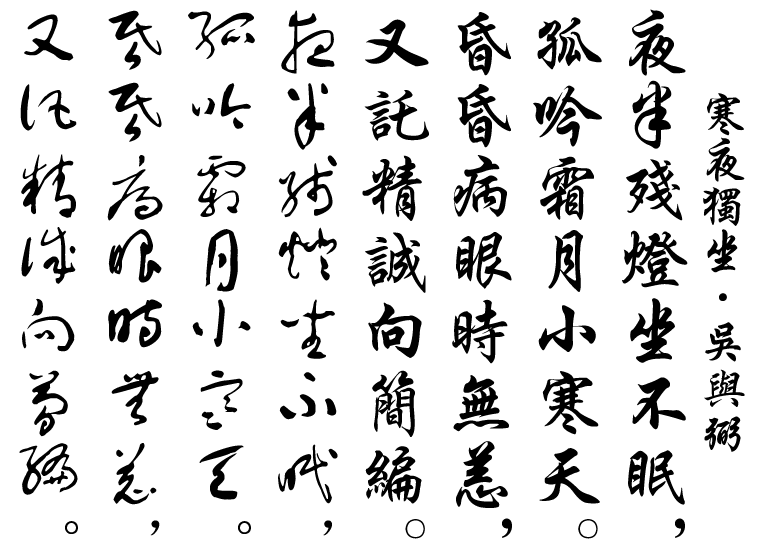 寒夜獨坐·吳與弼
夜半殘燈坐不眠，
孤吟霜月小寒天。
昏昏病眼時無恙，
又託精誠向簡編。
夜半殘燈坐不眠，
孤吟霜月小寒天。
昏昏病眼時無恙，
又託精誠向簡編。